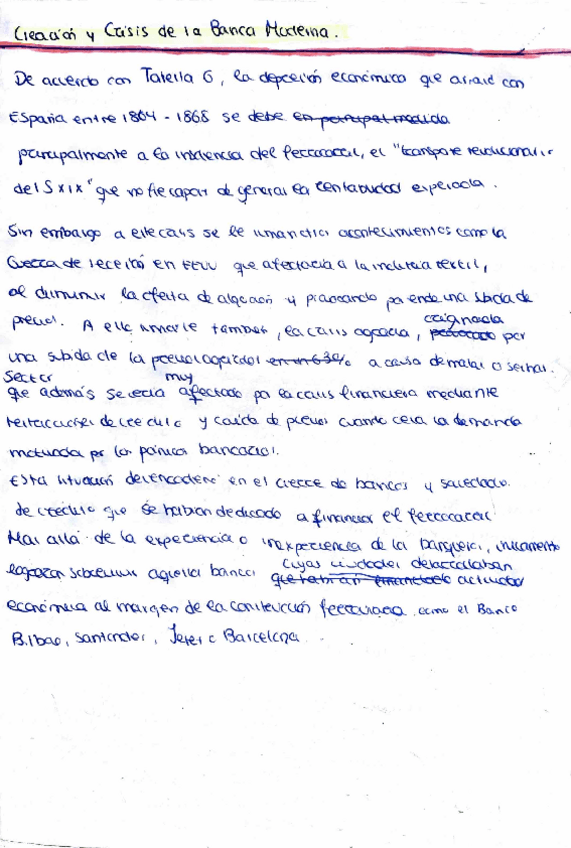 Creación y Crisis de la Banca Moderna.
De acuerdo con Tatella G, la depresión económica que arrasó con
España entre 1864 - 1868 se debe en principal medida
principalmente a la incidencia del ferrocarril, el "transporte revolucionario
del S XIX" que no fue capaz de generar la rentabilidad esperada.
Sin embargo a este crisis se le unan otros acontecimientos como la
Guerra de Secesión en EEUU que afectaría a la industria textil,
al disminuir la oferta de algodón y provocando por ende una subida de
precios. A ello unirle también, la crisis agraria, provocado originada por
una subida de los precios agrícolas en un 63% a causa de malas cosechas.
Sector
que además se vería muy afectado por la crisis financiera mediante
restricciones de crédito y caída de precios cuando cera la demanda
motivada por los pánicos bancarios.
Esta situación desencadenó en el cierre de bancos y sociedades
de crédito que se habían dedicado a financiar el ferrocarril
Mas allá de la experiencia o inexperiencia de los banqueros, únicamente
lograron sobrevivir aquellos bancos que habían financiado cuyas ciudades desarrollaban actividad
económica al margen de la construcción ferroviaria como el Banco
Bilbao, Santander, Jerez o Barcelona.